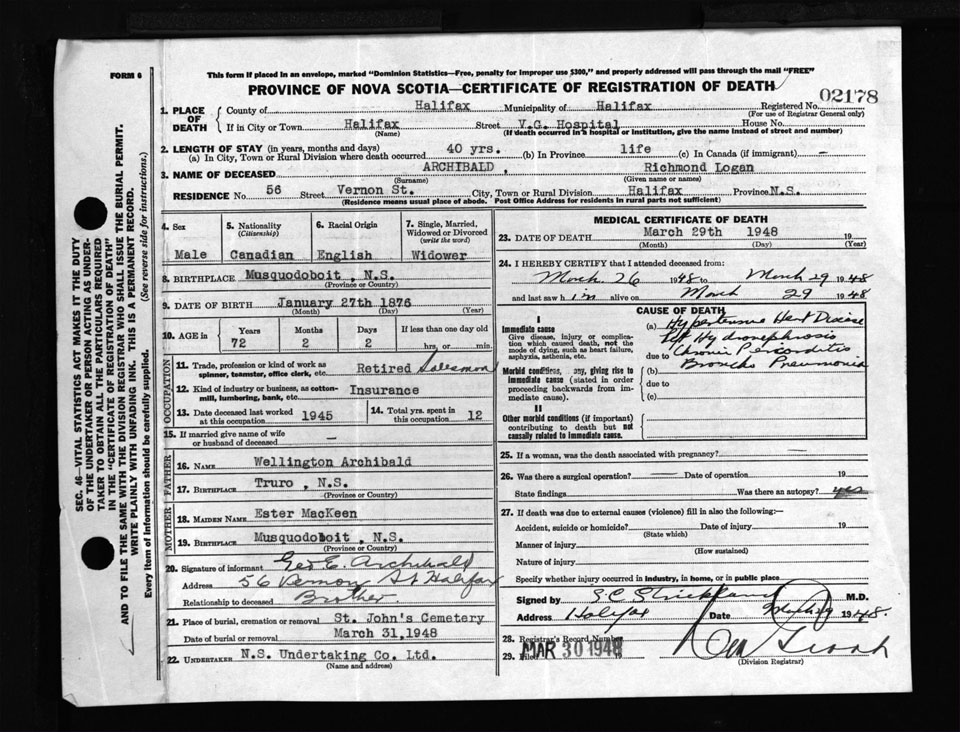 FORM 6
This form if placed in an envelope, marked "Dominion Statistics—Free, penalty for improper use $300," and properly addressed will pass through the mail "FREE"
PROVINCE OF NOVA SCOTIA—CERTIFICATE OF REGISTRATION OF DEATH
02178
1. PLACE OF DEATH
County of Halifax Municipality of Halifax Registered No.
(For use of Registrar General only)
If in City or Town Halifax Street V.G. Hospital House No.
(Name) (If death occurred in a hospital or institution, give the name instead of street and number)
2. LENGTH OF STAY (in years, months and days)
(a) In City, Town or Rural Division where death occurred 40 yrs. (b) In Province life (c) In Canada (if immigrant) —
3. NAME OF DECEASED ARCHIBALD, Richmond Logan
(Surname) (Given name or names)
RESIDENCE No. 56 Street Vernon St. City, Town or Rural Division Halifax Province N.S.
(Residence means usual place of abode. Post Office Address for residents in rural parts not sufficient)
4. Sex
Male
5. Nationality
(Citizenship)
Canadian
6. Racial Origin
English
7. Single, Married, Widowed or Divorced
(write the word)
Widower
8. BIRTHPLACE Musquodoboit, N.S.
(Province or Country)
9. DATE OF BIRTH January 27th 1876
(Month) (Day) (Year)
10. AGE in Years Months Days If less than one day old
72 2 2 hrs. or min.
OCCUPATION
11. Trade, profession or kind of work as spinner, teamster, office clerk, etc. Retired Salesman
12. Kind of industry or business, as cotton-mill, lumbering, bank, etc. Insurance
13. Date deceased last worked at this occupation 1945
14. Total yrs. spent in this occupation 12
15. If married give name of wife or husband of deceased —
FATHER
16. NAME Wellington Archibald
17. BIRTHPLACE Truro, N.S.
(Province or Country)
MOTHER
18. MAIDEN NAME Ester MacKeen
19. BIRTHPLACE Musquodoboit, N.S.
(Province or Country)
20. Signature of informant Geo E. Archibald
Address 56 Vernon St Halifax
Relationship to deceased Brother.
21. Place of burial, cremation or removal St. John's Cemetery
Date of burial or removal March 31, 1948
22. UNDERTAKER N.S. Undertaking Co. Ltd.
(Name and address)
MEDICAL CERTIFICATE OF DEATH
23. DATE OF DEATH March 29th 1948 19
(Month) (Day) (Year)
24. I HEREBY CERTIFY that I attended deceased from:
March 26 1948 to March 29 1948
and last saw him alive on March 29 1948
CAUSE OF DEATH
I
Immediate cause
Give disease, injury or complication which caused death, not the mode of dying, such as heart failure, asphyxia, asthenia, etc.
Morbid conditions, any, giving rise to immediate cause (stated in order proceeding backwards from immediate cause).
II
Other morbid conditions (if important) contributing to death but not causally related to immediate cause.
(a) Hypertensive Heart Disease
Left Hydronephrosis
due to Chronic Pericarditis
(b) Broncho Pneumonia
due to
(c)
25. If a woman, was the death associated with pregnancy?
26. Was there a surgical operation? — Date of operation 19
State findings Was there an autopsy? yes
27. If death was due to external causes (violence) fill in also the following:—
Accident, suicide or homicide? Date of injury 19
(State which)
Manner of injury
(How sustained)
Nature of injury
Specify whether injury occurred in industry, in home, or in public place
Signed by S.C. Strickland M.D.
Address Halifax Date 1948.
28. Registrar's Record Number
29. MAR 30 1948
(Division Registrar)
SEC. 46—VITAL STATISTICS ACT MAKES IT THE DUTY
OF THE UNDERTAKER OR PERSON ACTING AS UNDER-
TAKER TO OBTAIN ALL THE PARTICULARS REQUIRED
IN THE "CERTIFICATE OF REGISTRATION OF DEATH"
AND TO FILE THE SAME WITH THE DIVISION REGISTRAR WHO SHALL ISSUE THE BURIAL PERMIT.
WRITE PLAINLY WITH UNFADING INK. THIS IS A PERMANENT RECORD.
Every item of information should be carefully supplied. (See reverse side for instructions.)